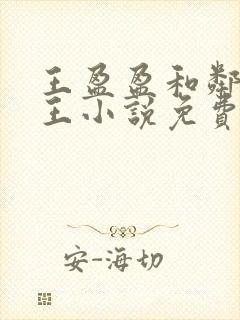 王盈盈和鄰
王小說免費
安-海切